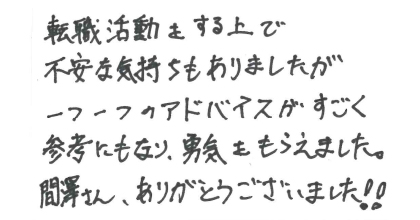 転職活動をする上で
不安な気持ちもありましたが
一つ一つのアドバイスがすごく
参考にもなり、勇気をもらえました。
間澤さん、ありがとうございました!!